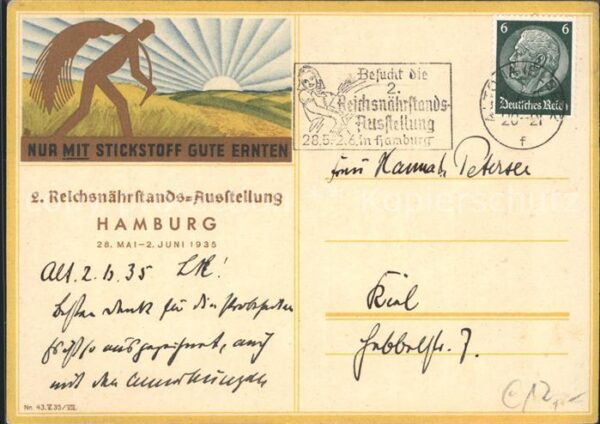 NUR MIT STICKSTOFF GUTE ERNTEN
2. Reichsnährstands=Ausstellung
HAMBURG
28. MAI-2. JUNI 1935
Alt. 2. 6. 35
besten Dank für die
ausgezeichnet, auch
mit den Anmerkungen
Nr. 43.V.35/VII.
Besucht die
2.
Reichsnährstands-
Ausstellung
28.5.-2.6. in Hamburg
6 6
Deutsches Reich
20-21
f
Frau Hannah Petersen
Kiel
Hebbelstr. 7.